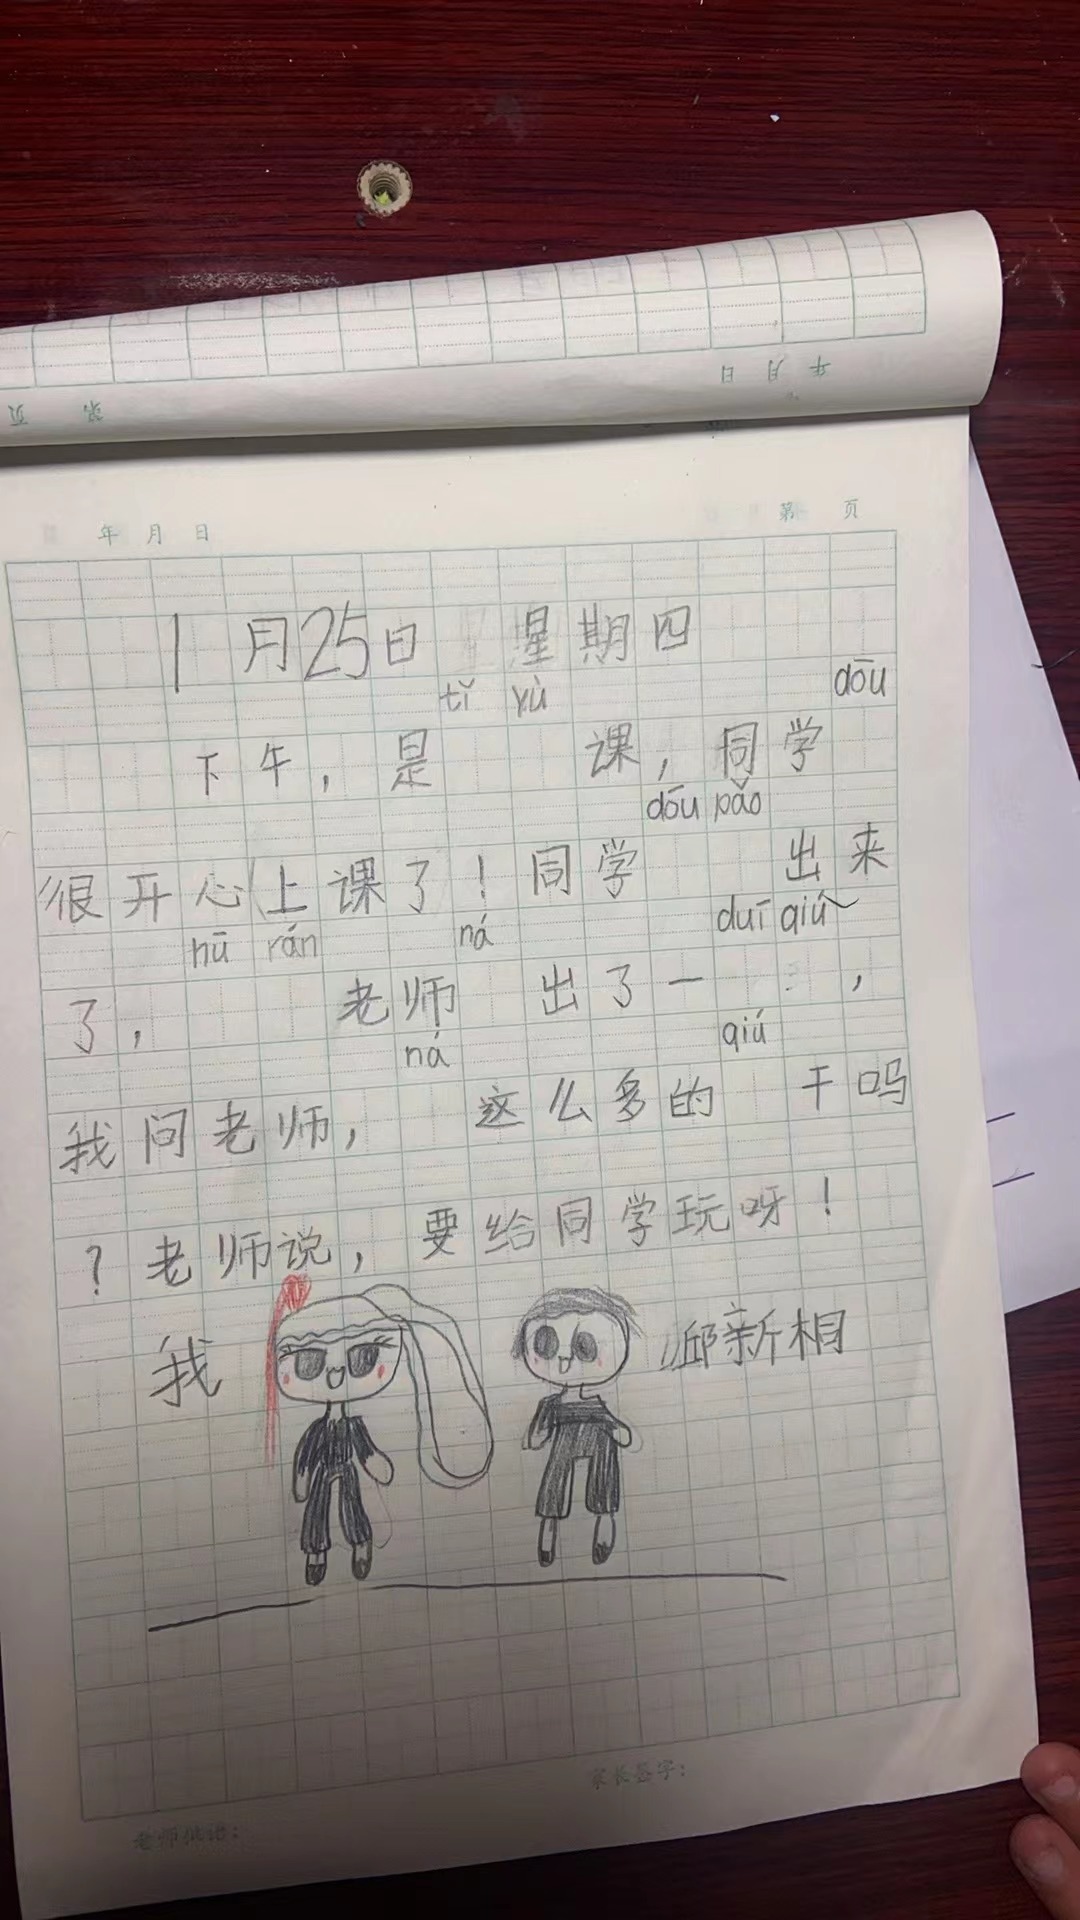 年 月 日
第 页
年 月 日
第 页
1月25日 星期四
tǐ yù dōu
下午，是 课，同学
dōu pǎo
很开心上课了！同学 出来
hū rán ná duī qiú
了， 老师 出了一 ，
ná qiú
我问老师， 这么多的 干吗
？老师说，要给同学玩呀！
我 邱新相
家长签字：